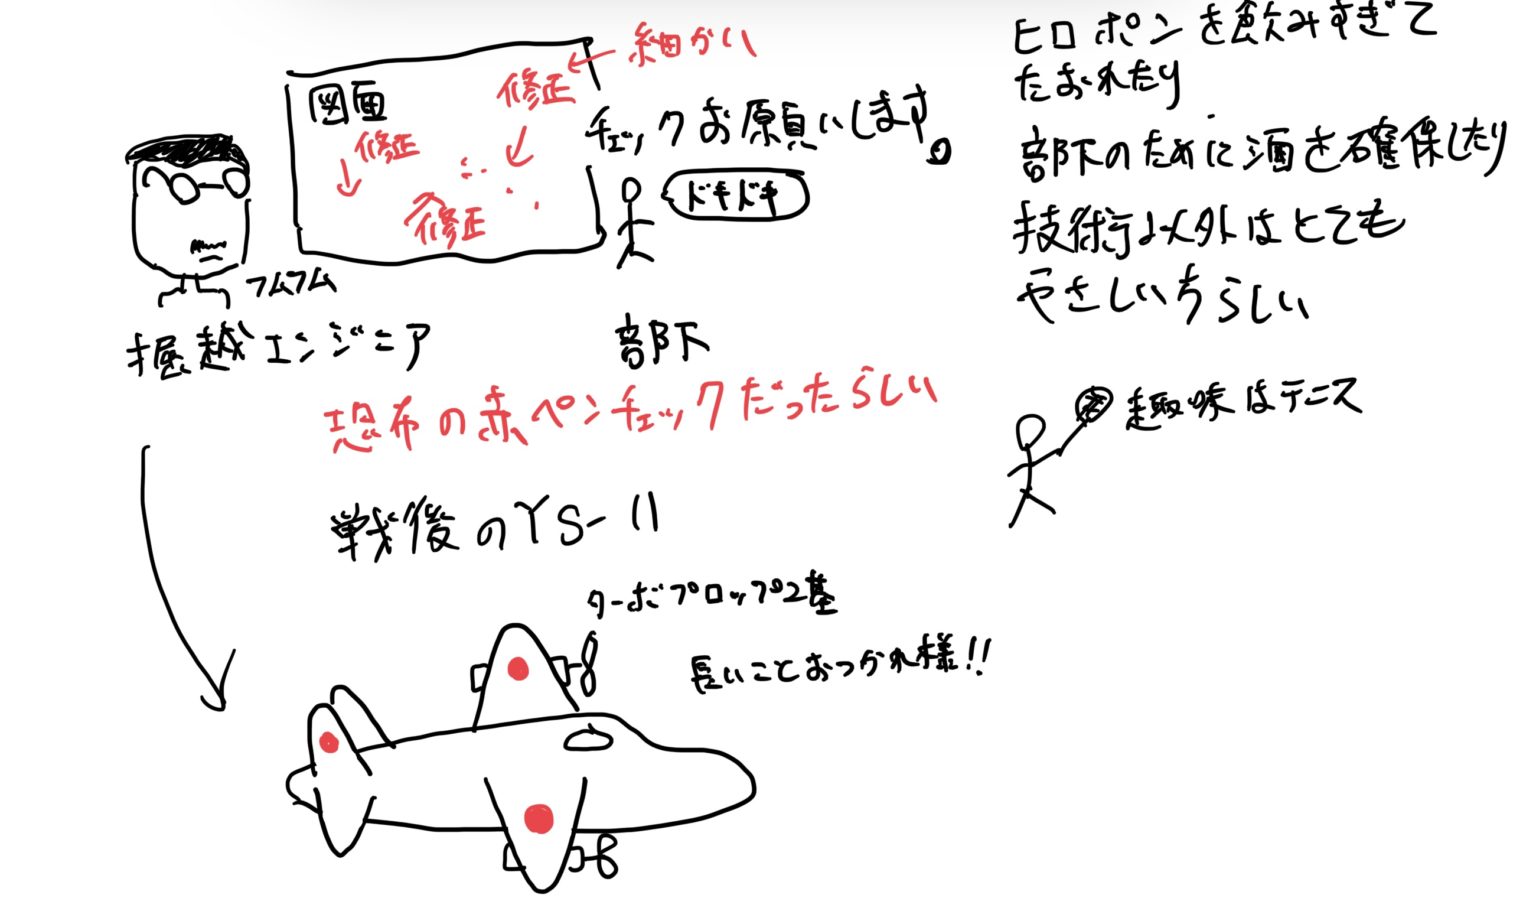 図面
修正
修正
修正
細かい
チェックお願いします。
ドキドキ
フムフム
堀越エンジニア
部下
恐怖の赤ペンチェックだったらしい
戦後のYS-11
ターボプロップ2基
長いことおつかれ様!!
ヒロポンを飲みすぎて
たおれたり
部下のために酒を確保したり
技術以外はとても
やさしいらしい
趣味はテニス